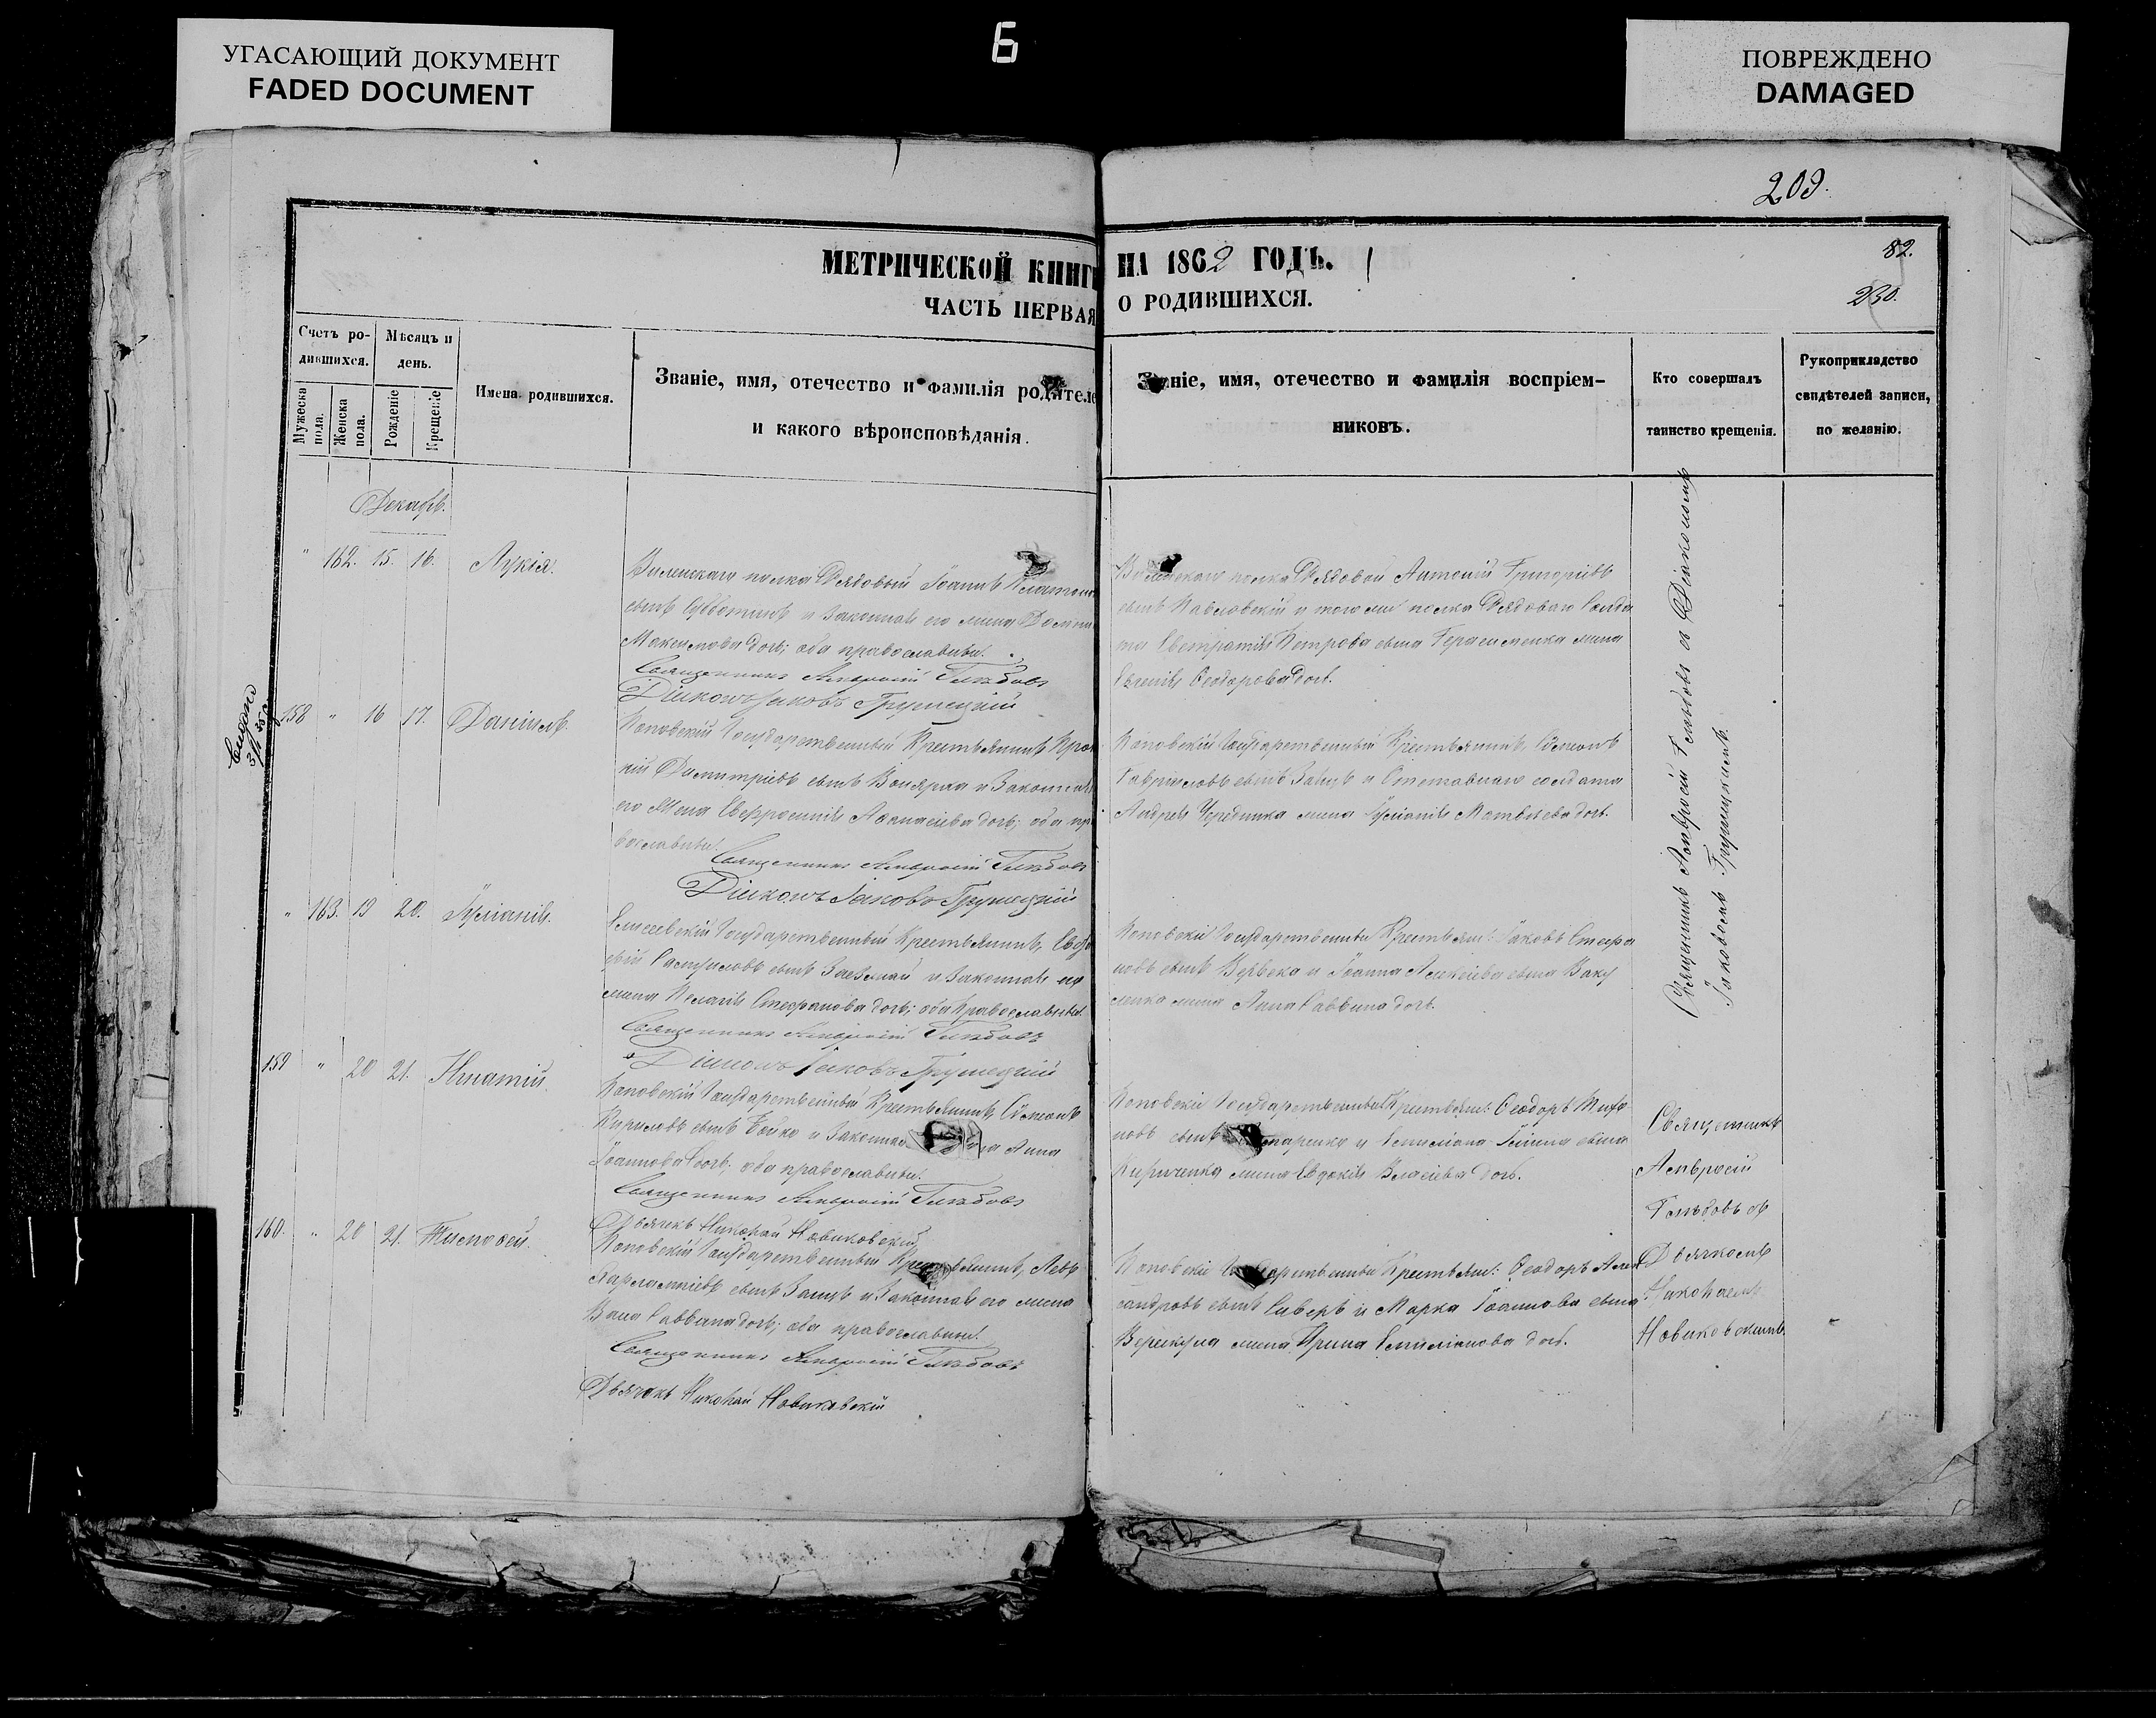 УГАСАЮЩИЙ ДОКУМЕНТ
FADED DOCUMENT
Б
ПОВРЕЖДЕНО
DAMAGED
209.
МЕТРИЧЕСКОЙ КНИГИ НА 1862 ГОДЪ.
82.
ЧАСТЬ ПЕРВАЯ О РОДИВШИХСЯ.
230.
Счетъ ро-
дившихся.
Мѣсяцъ и
день.
Мужеска
пола.
Женска
пола.
Рожденіе
Крещеніе
Имена родившихся.
Званіе, имя, отечество и фамилія родителе
и какого вѣроисповѣданія.
Званіе, имя, отечество и фамилія воспріем-
никовъ.
Кто совершалъ
таинство крещенія.
Рукоприкладство
свидѣтелей записи,
по желанію.
Декабрь.
" 162. 15. 16. Лукія.
полка Рядовый Іоаннъ Платоно
евъ сынъ Субботинъ и Законная его жена Домни
Максимова дочь; оба православные.
Священникъ Амвросій Глѣбовъ
Діаконъ Іаковъ Грушецкій
полка Рядовой Антоній Григоріевъ
сынъ Павловскій и того же полка Рядоваго Солда
та Евстратія Петрова сына Герасименка жена
Евгенія Ѳеодорова дочь.
158 " 16 17. Даніилъ.
Поповскій Государственный Крестьянинъ
кій Димитріевъ сынъ и Законная
его Жена Евфросинія Аѳанасіева дочь; оба пра
вославные.
Священникъ Амвросій Глѣбовъ
Діаконъ Іаковъ Грушецкій
Поповскій Государственный Крестьянинъ, Симеонъ
Гавріиловъ сынъ Заяцъ и Отставнаго солдата
Андрея Чередника жена Іуліанія Матвѣева дочь.
" 163. 19 20. Іуліанія.
Государственный Крестьянинъ,
сынъ и Законная его
жена Пелагія Стефанова дочь; оба Православные.
Священникъ Амвросій Глѣбовъ
Діаконъ Іаковъ Грушецкій
Поповскій Государственный Крестьян: Іаковъ Стефа
новъ сынъ Вербека и Іоанна Алексіева сына Баку
менка жена Анна Саввина дочь.
Священникъ Амвросій Глѣбовъ съ Діакономъ
Іаковомъ Грушецкимъ.
159 " 20 21. Игнатій.
Поповскій Государственный Крестьянинъ, Симеонъ
Кириловъ сынъ Бойко и Законная Анна
Іоаннова дочь; оба православные.
Священникъ Амвросій Глѣбовъ
Дьячекъ Николай Новиковскій
Поповскій Государственный Крестьян: Ѳеодоръ
новъ сынъ и сына
Кириченка жена Евдокія Власіева дочь.
Священникъ
Амвросій
Глѣбовъ съ
Дьячкомъ
Николаемъ
Новиковскимъ.
160. " 20 21. Тимоѳей.
Поповскій Государственный Крестьянинъ, Левъ
Харлампіевъ сынъ Заяцъ и Законная его жена
Васса Саввина дочь; оба православные.
Священникъ Амвросій Глѣбовъ
Дьячекъ Николай Новиковскій
Поповскій Государственный Крестьян: Ѳеодоръ Алек
сандровъ сынъ Сиверъ и Марка Іоаннова сына
жена Ирина Емиліанова дочь.